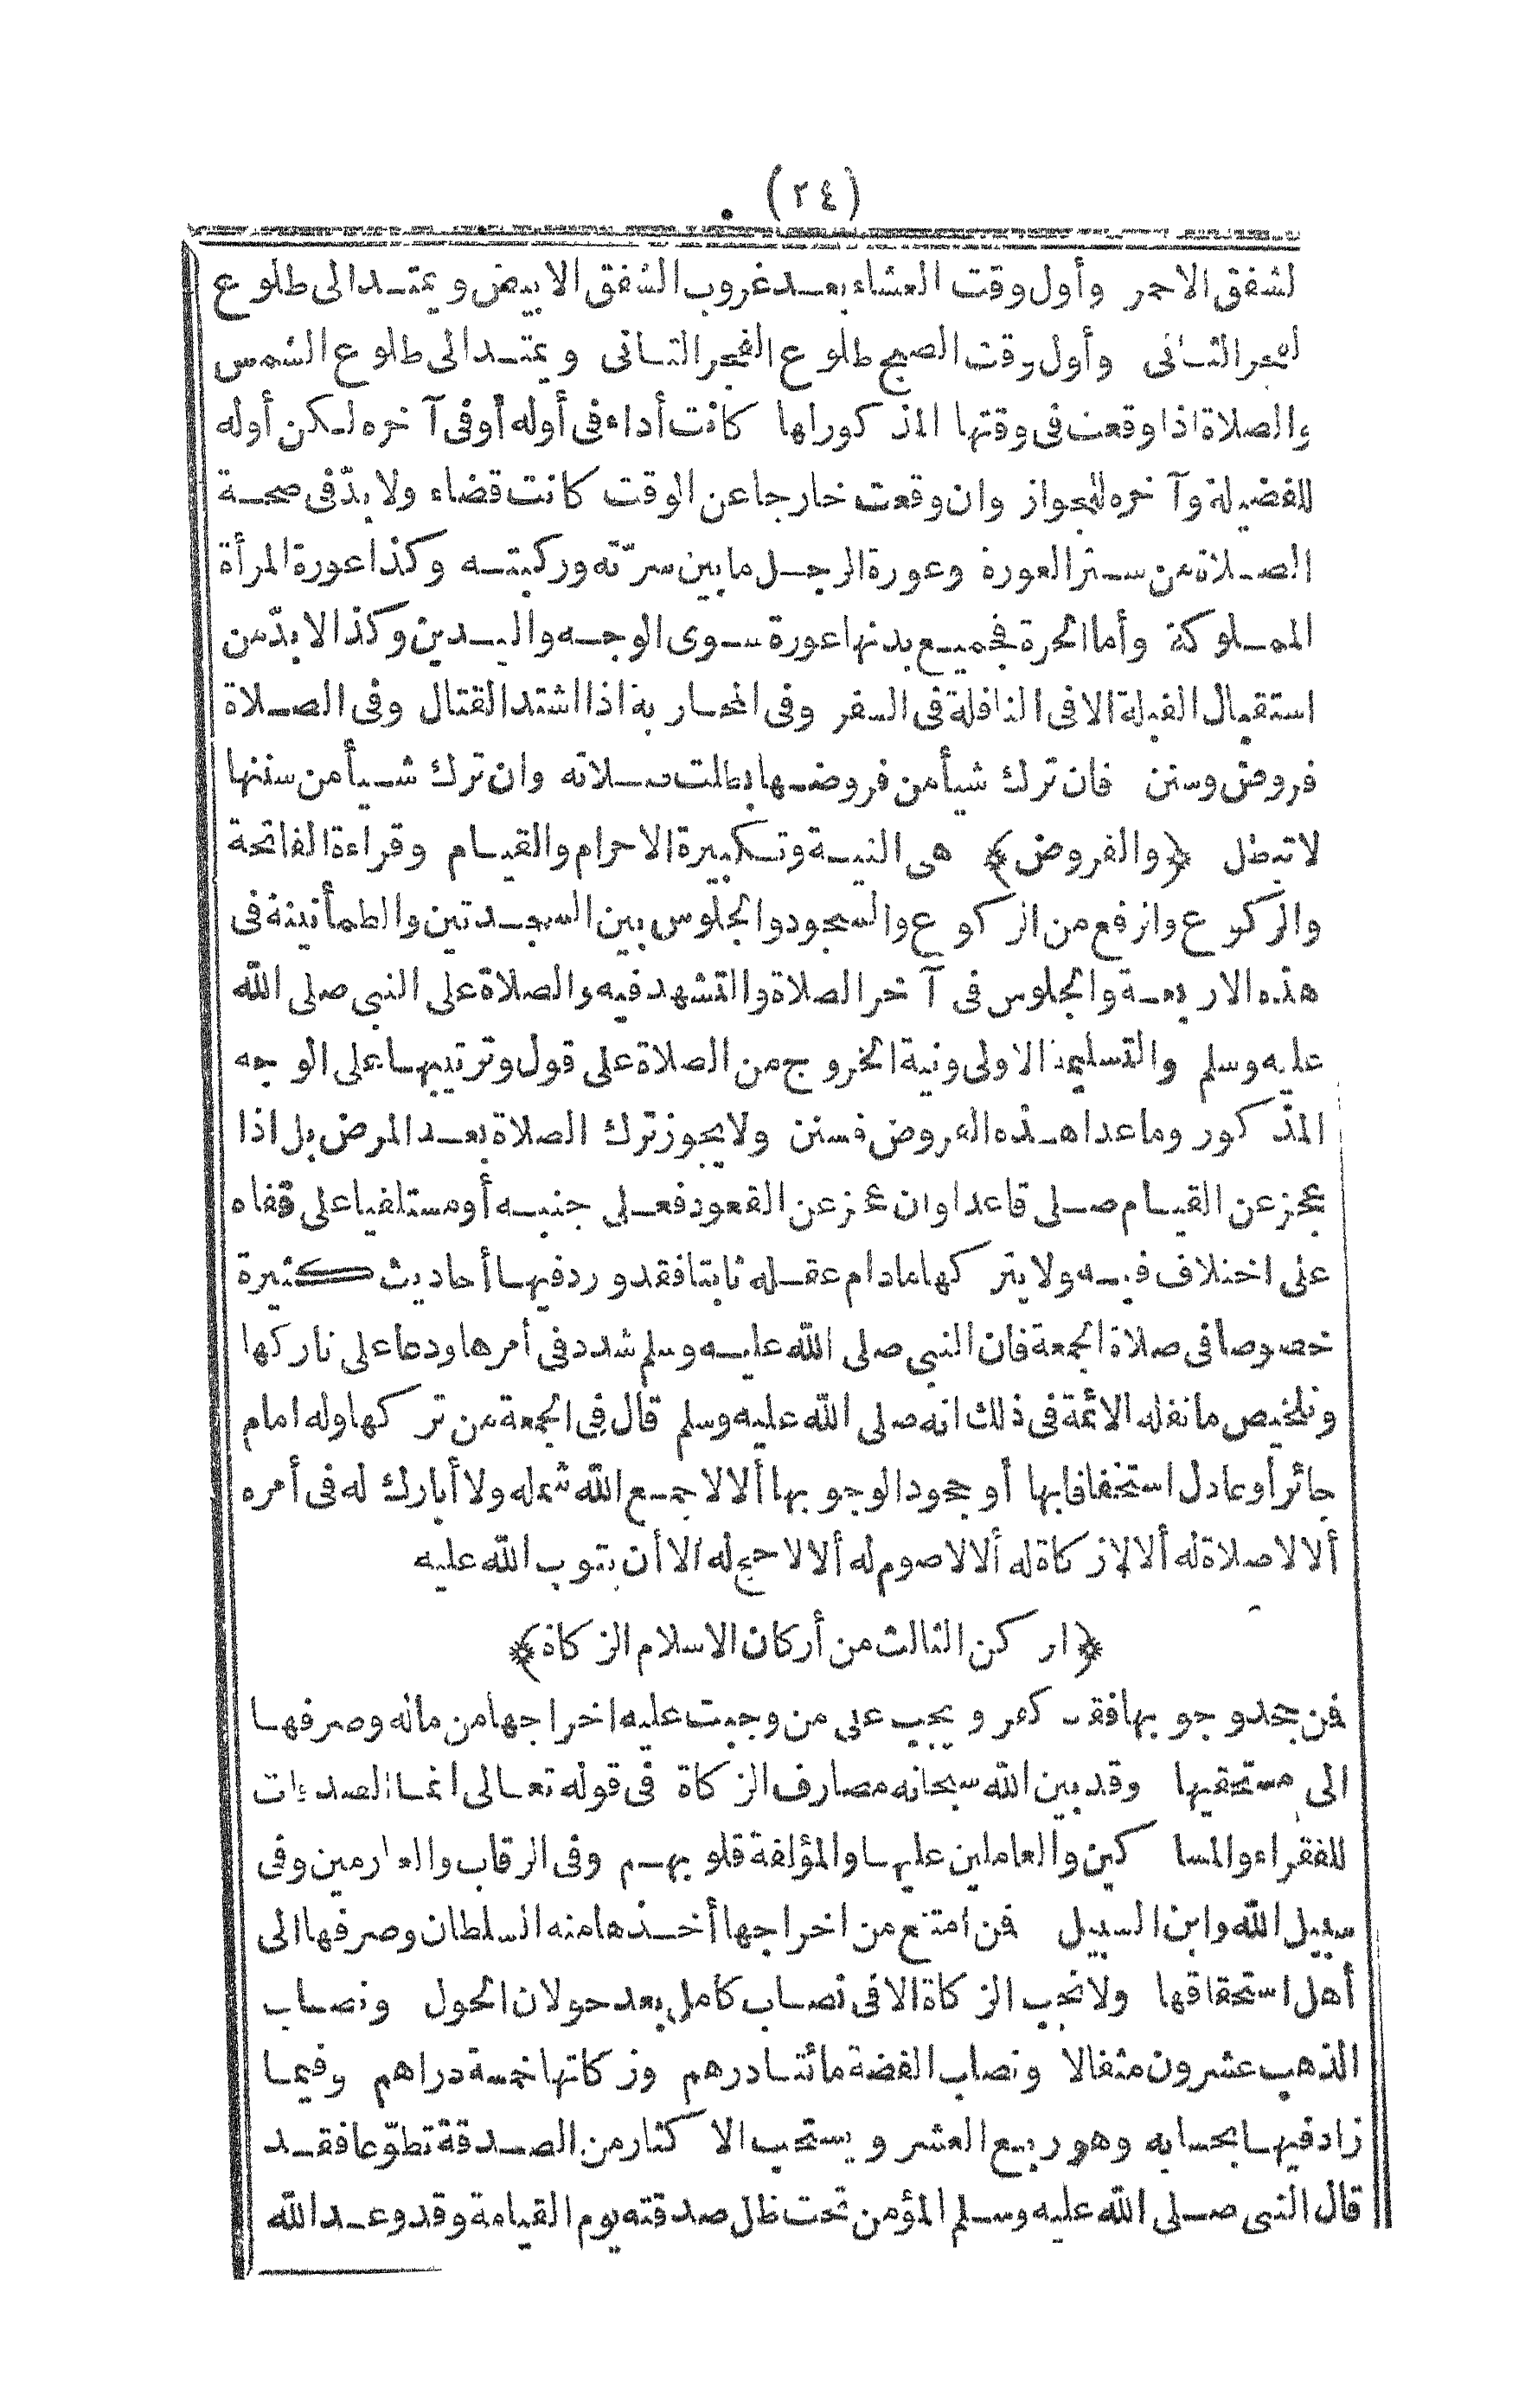 (٢٤)
لشفق الاحمر وأول وقت العشاء بعد غروب الشفق الابيض ويمتد الى طلوع
لفجر الثانى وأول وقت الصبح طلوع الفجر الثانى ويمتد الى طلوع الشمس
والصلاة اذا وقعت فى وقتها المذكور لها كانت أداء فى أوله أو فى آخره لكن أوله
للفضيلة وآخره للجواز وان وقعت خارجا عن الوقت كانت قضاء ولا بدّ فى صحة
الصلاة من ستر العورة وعورة الرجل ما بين سرّته وركبته وكذا عورة المرأة
المملوكة وأما الحرة فجميع بدنها عورة سوى الوجه واليدين وكذا لا بدّ من
استقبال القبلة الا فى النافلة فى السفر وفى المحاربة اذا اشتد القتال وفى الصلاة
فروض وسنن فان ترك شيأ من فروضها بطلت صلاته وان ترك شيأ من سننها
لا تبطل ﴿والفروض﴾ هى النية وتكبيرة الاحرام والقيام وقراءة الفاتحة
والركوع والرفع من الركوع والسجود والجلوس بين السجدتين والطمأنينة فى
هذه الاربعة والجلوس فى آخر الصلاة والتشهد فيه والصلاة على النبى صلى الله
عليه وسلم والتسليمة الاولى ونية الخروج من الصلاة على قول وترتيبها على الوجه
المذكور وما عدا هذه الفروض فسنن ولا يجوز ترك الصلاة بعد المرض بل اذا
عجز عن القيام صلى قاعدا وان عجز عن القعود فعلى جنبه أو مستلقيا على قفاه
على اختلاف فيه ولا يتركها مادام عقله ثابتا فقد ورد فيها أحاديث كثيرة
خصوصا فى صلاة الجمعة فان النبى صلى الله عليه وسلم شدد فى أمرها ودعا على تاركها
وتلخيص ما نقله الائمة فى ذلك انه صلى الله عليه وسلم قال فى الجمعة من تركها وله امام
جائر أو عادل استخفافا بها أو جحودا لوجوبها ألا لا جمع الله شمله ولا أبارك له فى أمره
ألا لا صلاة له ألا لا زكاة له ألا لا صوم له ألا لا حج له الا أن يتوب الله عليه
﴿الركن الثالث من أركان الاسلام الزكاة﴾
فمن جحد وجوبها فقد كفر ويجب على من وجبت عليه اخراجها من ماله وصرفها
الى مستحقيها وقد بين الله سبحانه مصارف الزكاة فى قوله تعالى انما الصدقات
للفقراء والمساكين والعاملين عليها والمؤلفة قلوبهم وفى الرقاب والغارمين وفى
سبيل الله وابن السبيل فمن امتنع من اخراجها أخذها منه السلطان وصرفها الى
أهل استحقاقها ولا تجب الزكاة الا فى نصاب كامل بعد حولان الحول ونصاب
الذهب عشرون مثقالا ونصاب الفضة مائتا درهم وزكاتها خمسة دراهم وفيما
زاد فيها بحسابه وهو ربع العشر ويستحب الاكثار من الصدقة تطوّعا فقد
قال النبى صلى الله عليه وسلم المؤمن تحت ظل صدقته يوم القيامة وقد وعد الله